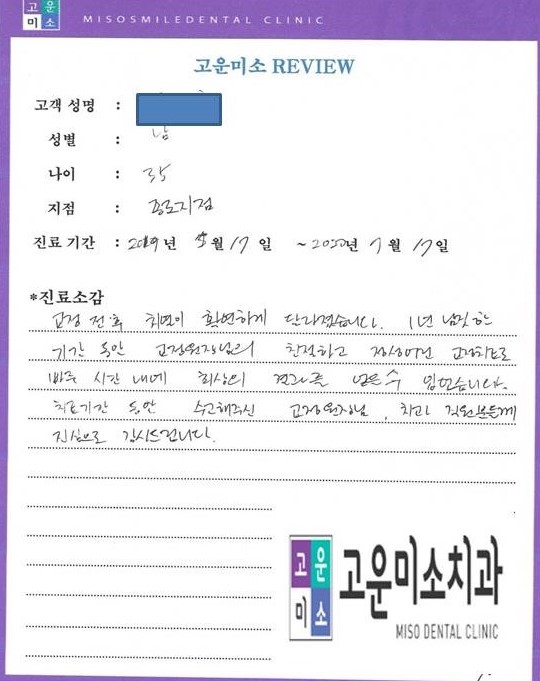 고운
미소 MISOSMILEDENTAL CLINIC
고운미소 REVIEW
고객 성명 :
성별 : 남
나이 : 35
지점 : 종로지점
진료 기간 : 2019년 5월 17일 ~2020년 7월 17일
*진료소감
교정 전후 치열이 확연하게 달라졌습니다. 1년 남짓한
기간 동안 교정원장님의 친절하고 정성어린 교정치료로
빠른 시간 내에 최상의 결과를 얻을수 있었습니다.
치료기간 동안 수고해주신 교정원장님, 치과 직원분들께
진심으로 감사드립니다.
고운
미소
고운미소치과
MISO DENTAL CLINIC